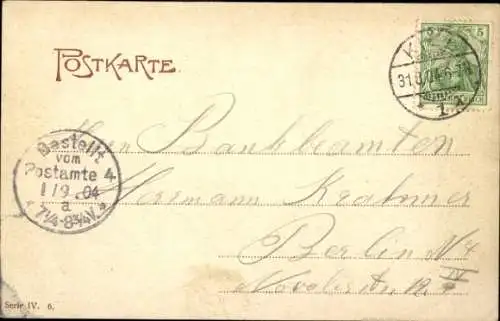 POSTKARTE.
5
31.8.04. 6-7N.
* 1 x
Bestellt
vom
Postamte 4
1/9 .04
a
* 7¼-8¾V. *
Herrn Bankbeamten
Hermann Krahmer
Berlin N4
Novalisstr. 12
IV
Serie IV. 6.